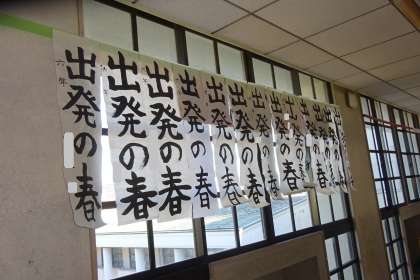 出発の春
六年
出発の春
出発の春
出発の春
出発の春
出発の春
出発の春
出発の春
出発の春
出発の春
出発の春
出発の春